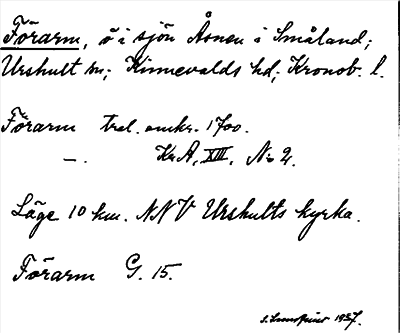 Förarm, ö i sjön Åsnen i Småland;
Urshult sn; Kinnevalds hd; Kronob. l.
Förarm tral. omkr. 1700.
—. Kr A, XIII, No 2.
Läge 10 km. NNV Urshults kyrka.
Förarm G. 15.
1937.